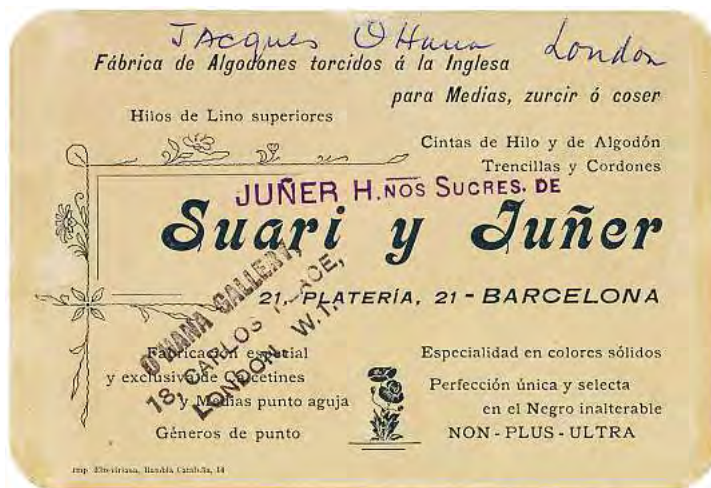 Jacques OHana London
Fábrica de Algodones torcidos á la Inglesa
para Medias, zurcir ó coser
Hilos de Lino superiores
Cintas de Hilo y de Algodón
Trencillas y Cordones
JUÑER H.NOS SUCRES. DE
Suari y Juñer
21, PLATERÍA, 21 - BARCELONA
O'HANA GALLERY,
18, CARLOS PLACE,
LONDON W.1.
Fabricación especial
y exclusiva de Calcetines
y Medias punto aguja
Géneros de punto
Especialidad en colores sólidos
Perfección única y selecta
en el Negro inalterable
NON-PLUS-ULTRA
Imp. Rambla Cataluña, 14